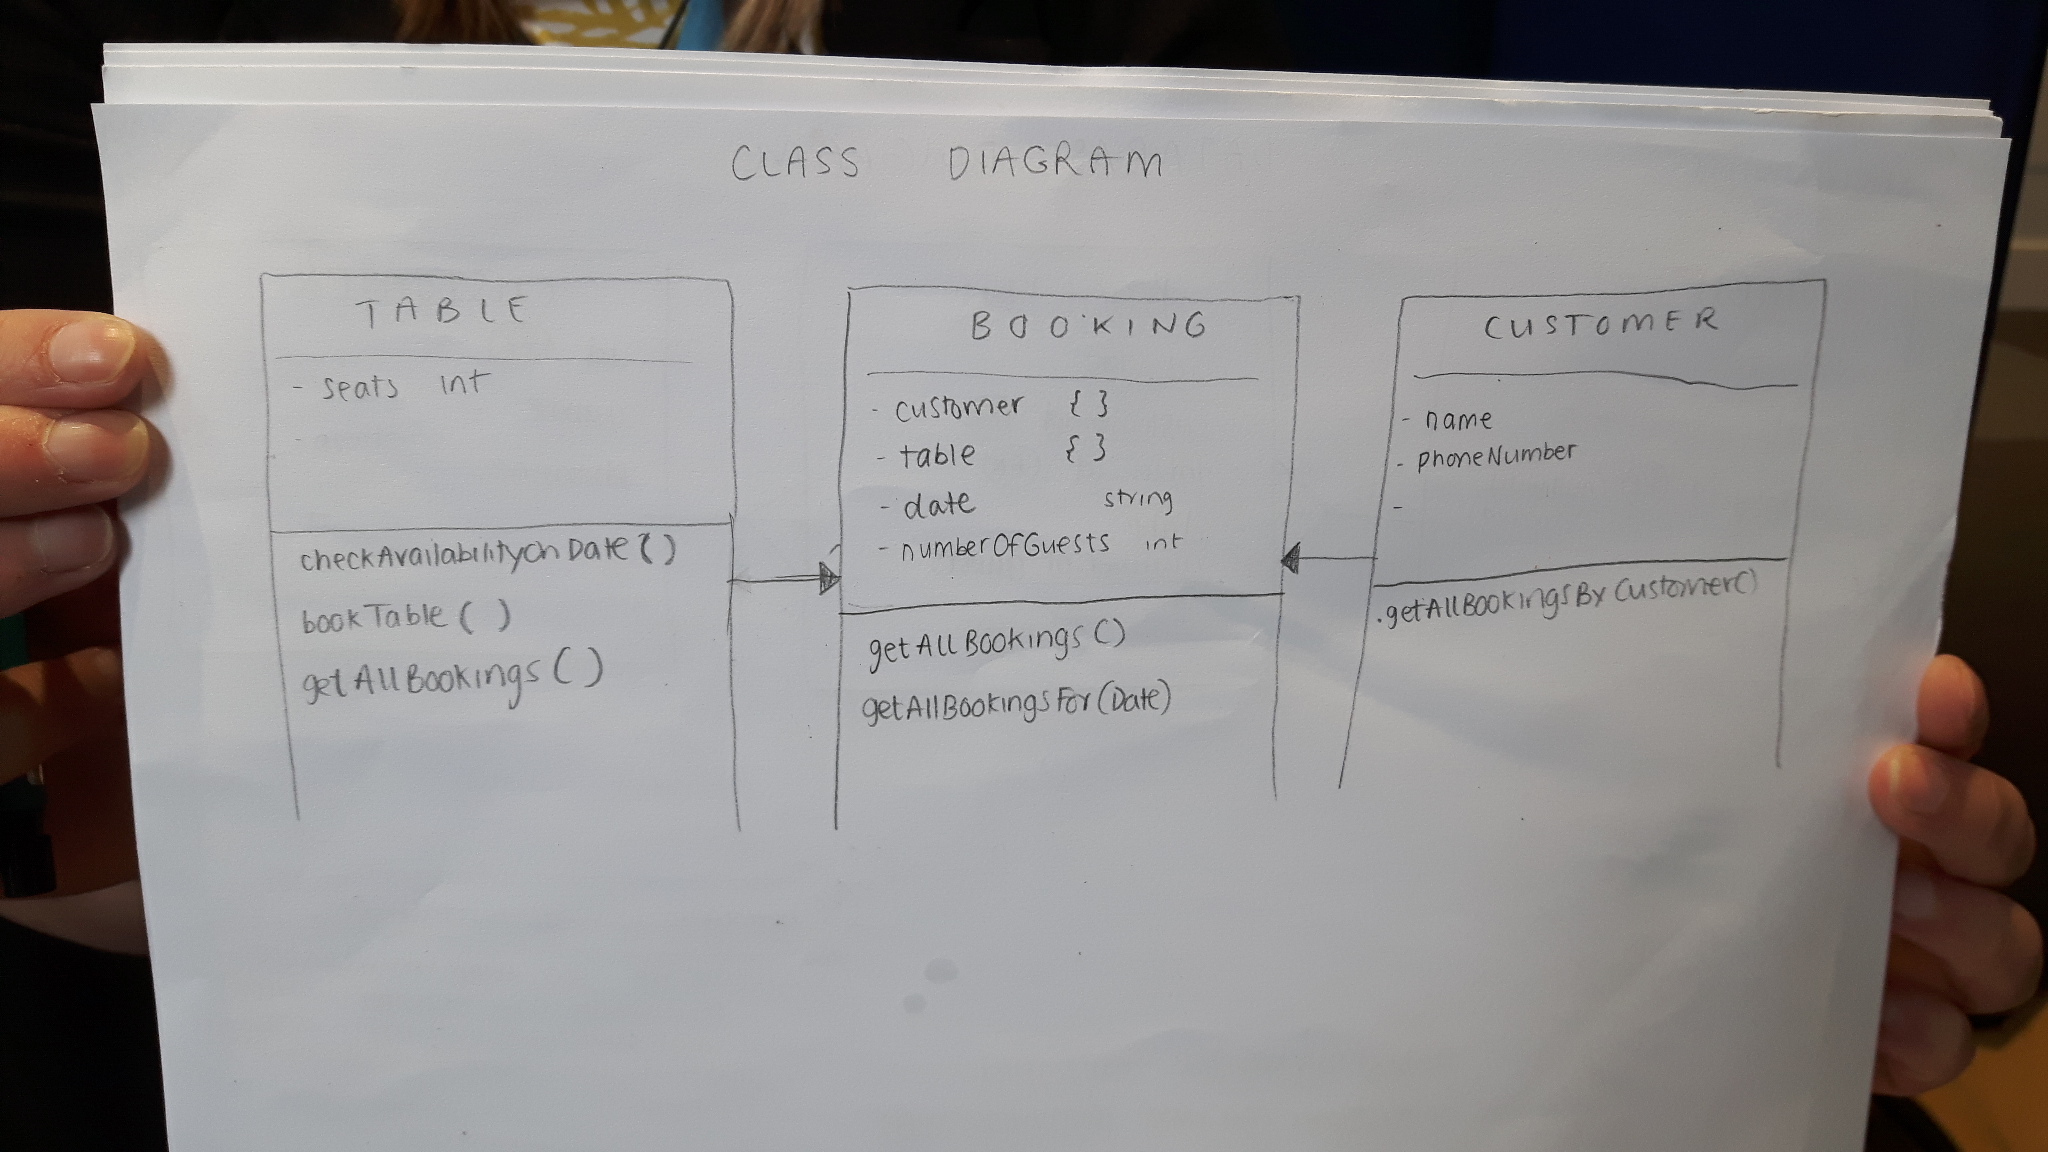 CLASS DIAGRAM
TABLE
- seats int
-
checkAvailabilityOnDate()
bookTable ( )
getAllBookings ( )
BOOKING
- customer { }
- table { }
- date string
- numberOfGuests int
getAllBookings ()
getAllBookingsFor (Date)
CUSTOMER
- name
- phoneNumber
-
.getAllBookingsByCustomer()